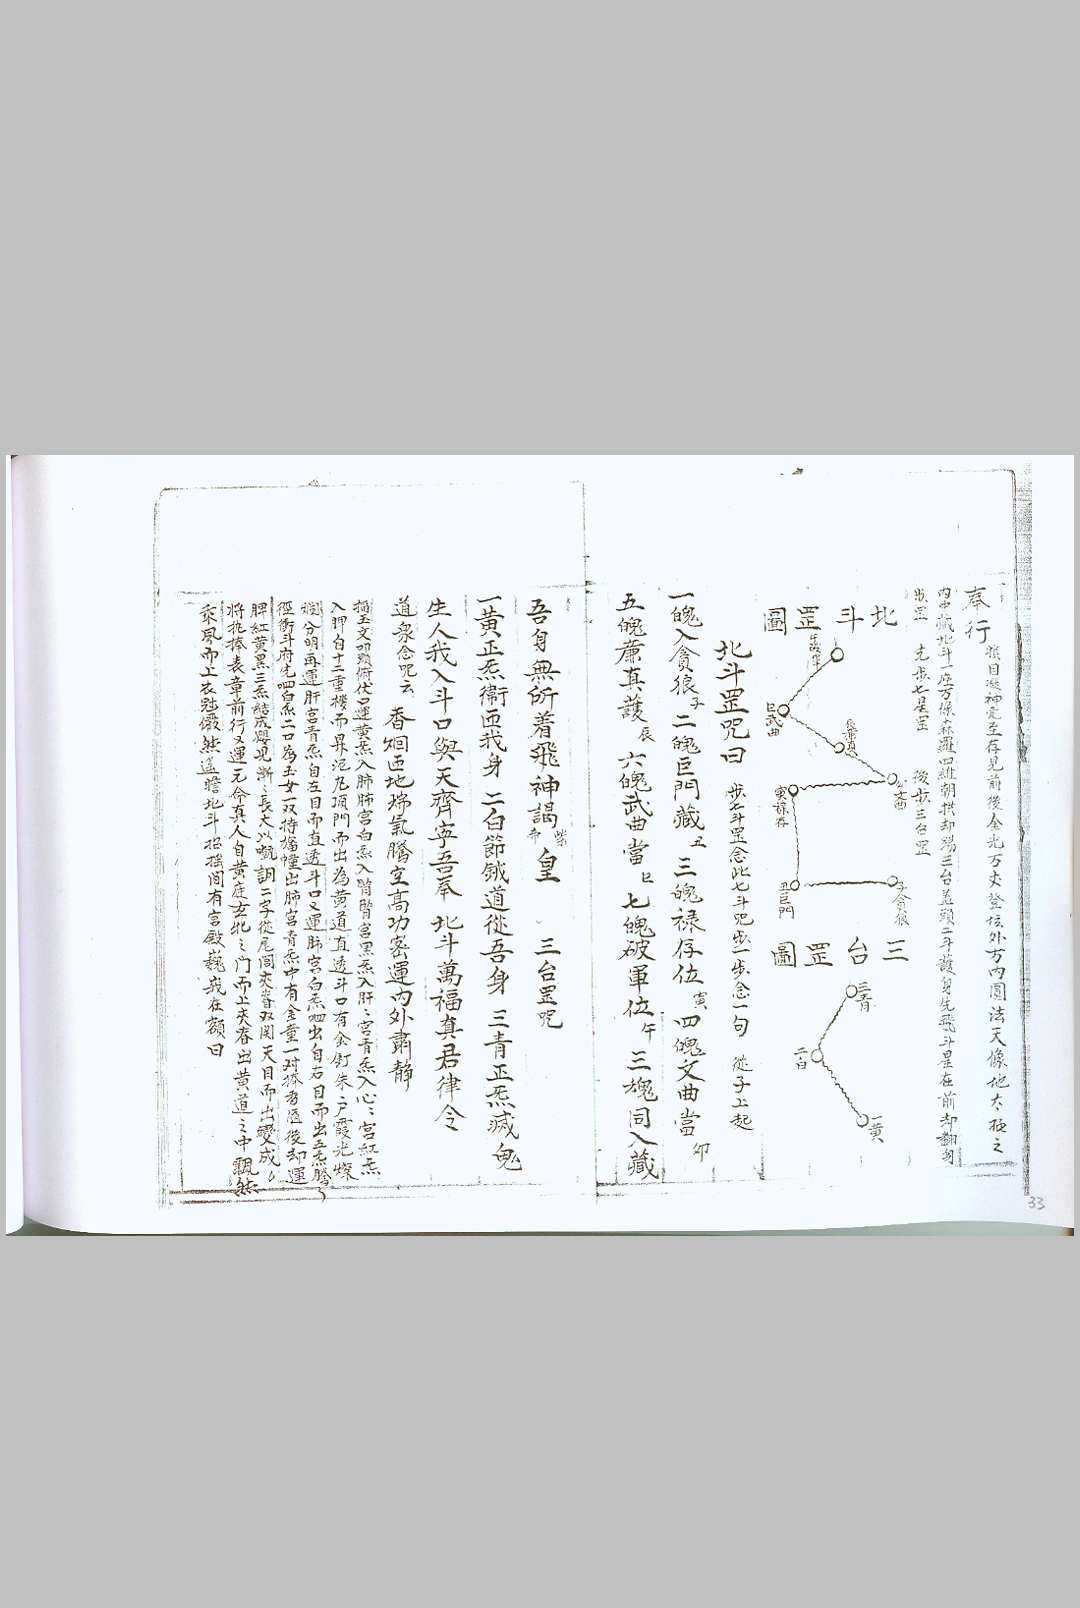 奉行
眼目凝神定至存見前後金光万丈登坛外方内圓法天像地太極之
内中藏北斗一座万像森羅四維朝拱却踢三台盖頭二斗護身先飛斗星在前却翻身
步罡 先步七星罡 後步三台罡
北斗罡圖
午破軍
巳武曲
辰廉真
卯文曲
寅禄存
丑巨門
子貪狼
三台罡圖
三青
二白
一黃
北斗罡咒曰 步七斗罡念此七斗咒步一步念一句 從子上起
一魄入貪狼子 二魄巨門藏丑 三魄禄存位寅 四魄文曲當卯
五魄簾真護辰 六魄武曲當巳 七魄破軍位午 三魂同入藏
吾身無所着飛神謁紫皇帝 三台罡咒
一黃正炁衛匝我身 二白節餓道從吾身 三青正炁滅鬼
生人我入斗口與天齊寧吾奉 北斗萬福真君律令
道衆念咒云 香烟匝地瑞氣騰空高功密運内外肅静
搯玉文叩頭俯伏口運黄炁入肺肺宮白炁入腎腎宮黑炁入肝肝宮青炁入心心宮紅炁
入脾自十二重樓而昇泥丸頂門而出為黄道直透斗口有金釘朱户霞光燦
爛分明再運肝宮青炁自左目而直透斗口又運肺宮白炁呬出自右目而出五炁騰
徑衝斗府先呬白炁二口為玉女一双持旛幢出肺宮青炁中有金童一对捧香炉後却運
脾紅黄黑三炁結成嬰児漸漸長大以 調二字從尾閭夾脊双関天目而出變成
将 捧表章前行又運元命真人自黄庭玄牝之門而上夾脊出黄道之中飄然
乘風而上衣 儼然遥瞻北斗招搖間有宮殿巍峩在額曰
33